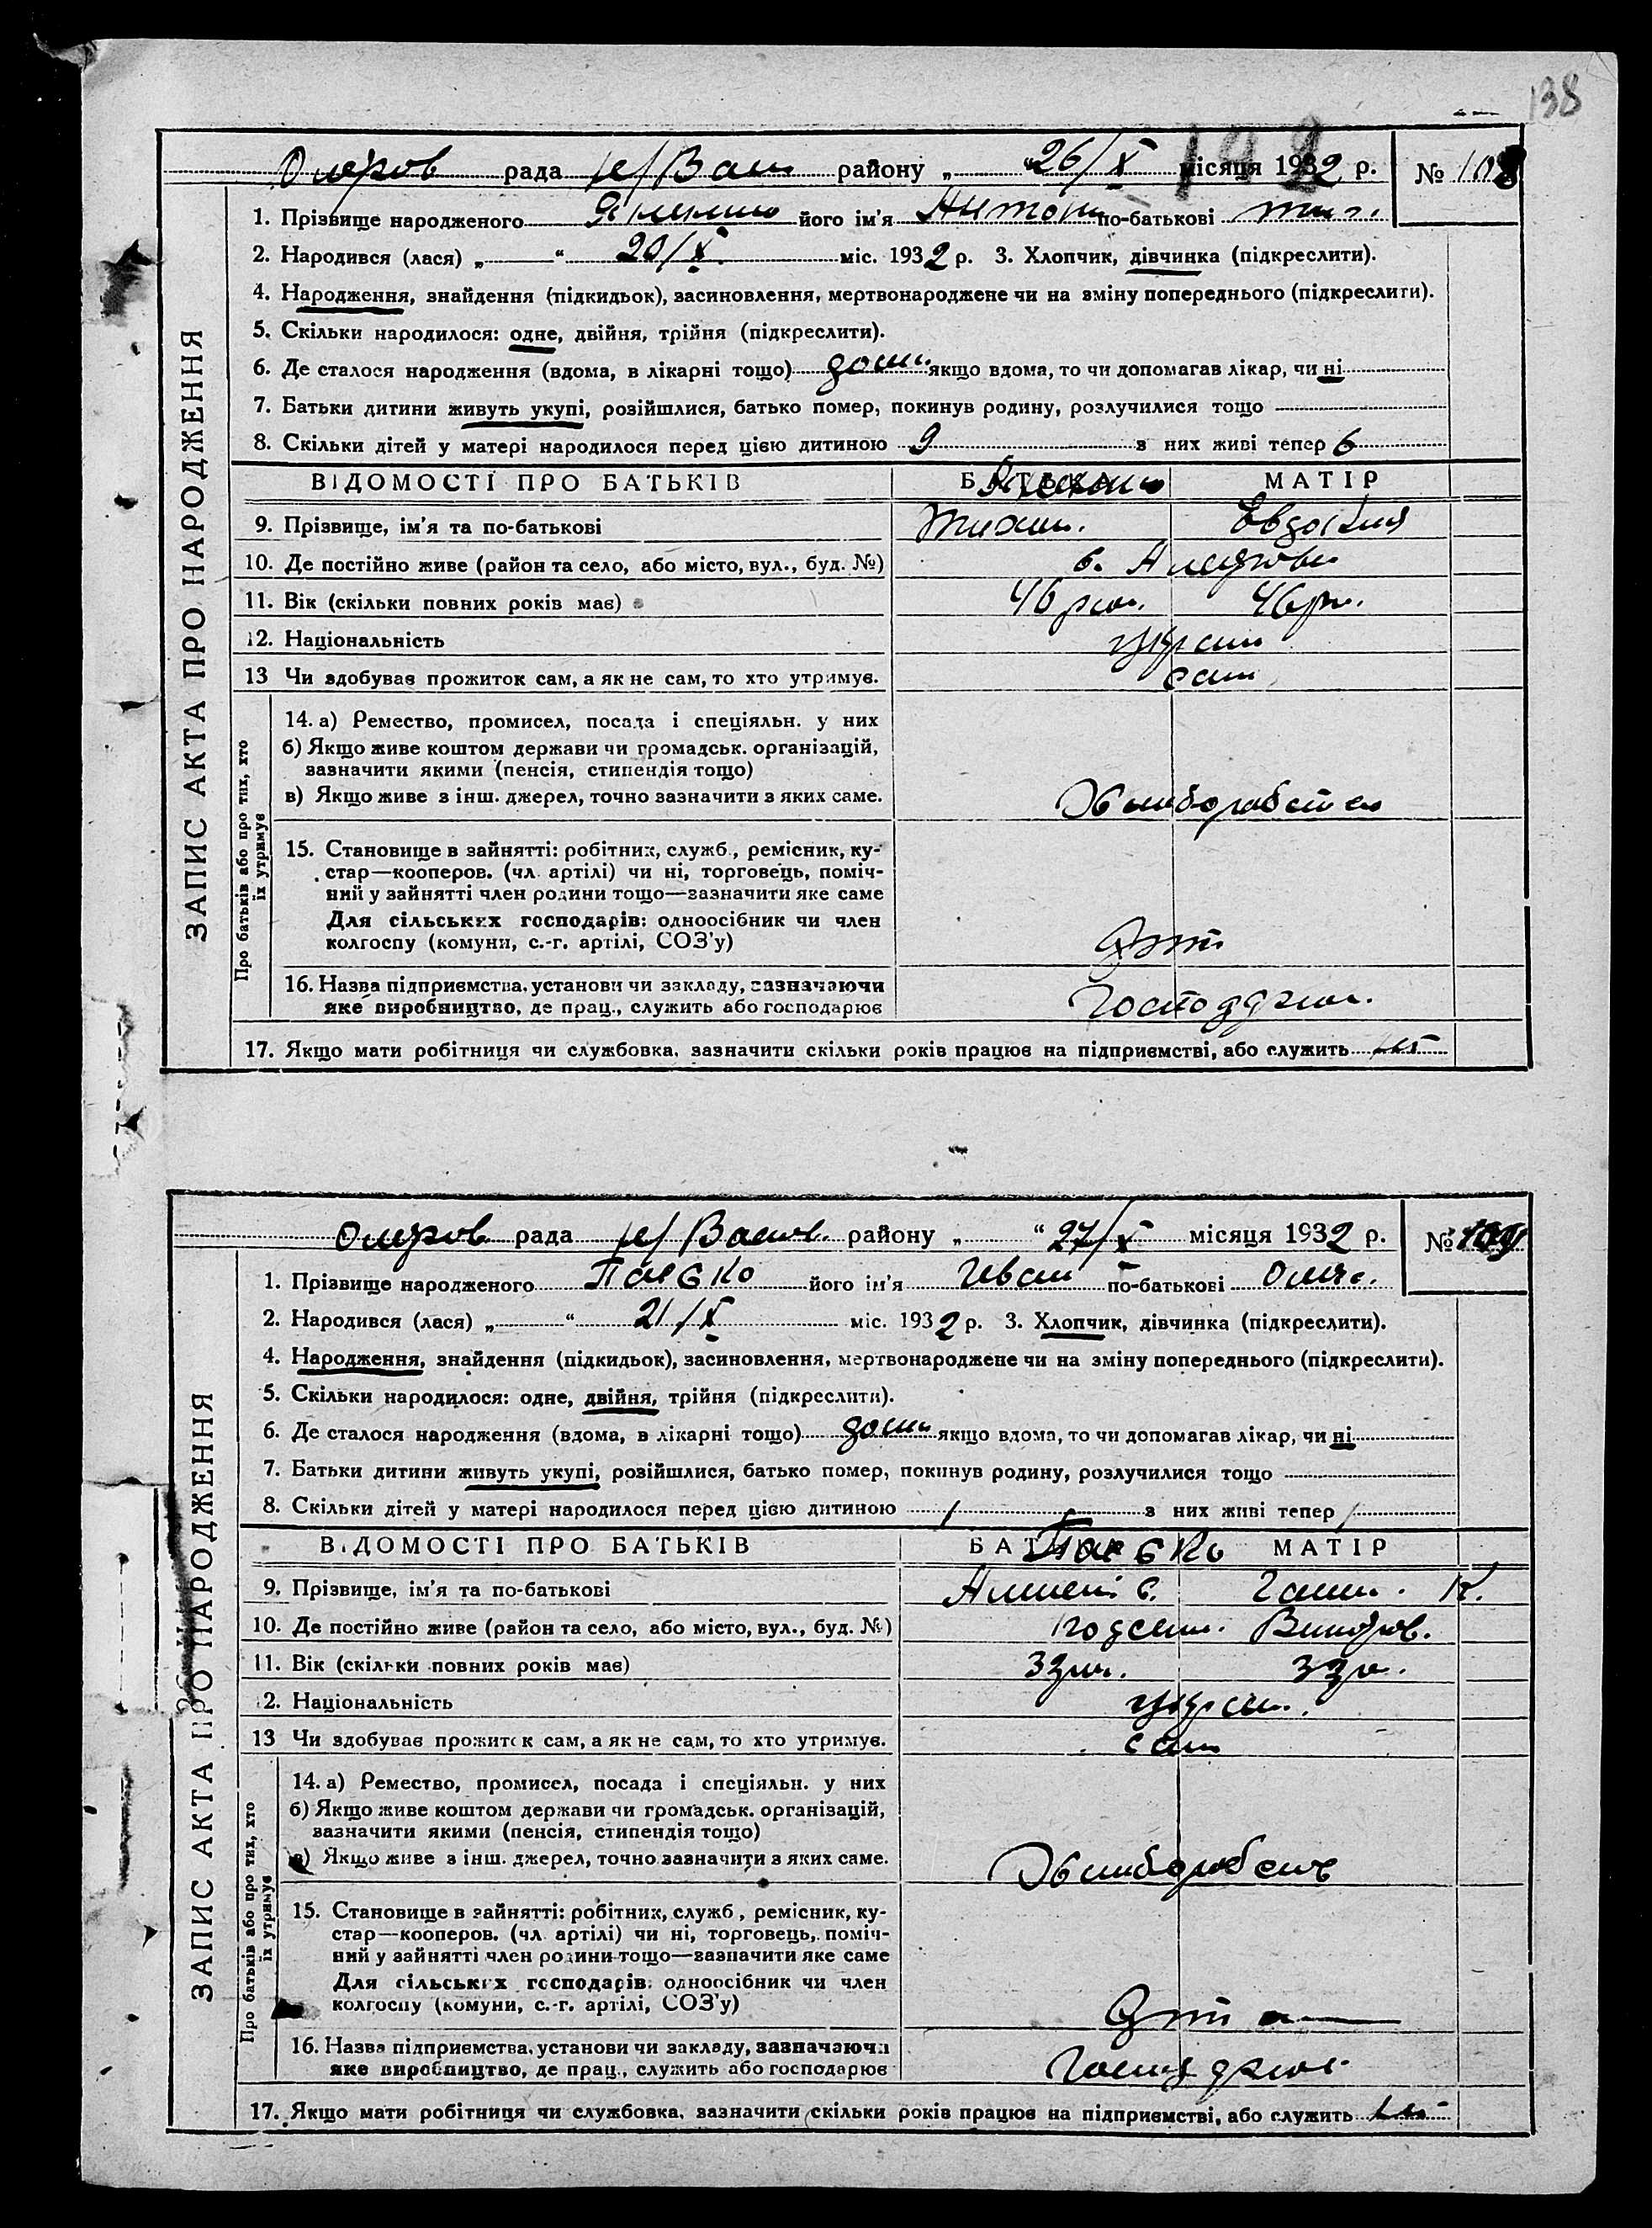 138
рада района „ “ 26/X місяця 1932 р. № 108
1. Прізвище народженого його ім'я по-батькові
2. Народився (лася) „ “ 20/X міс. 1932 р. 3. Хлопчик, дівчинка (підкреслити).
4. Народження, знайдення (підкидьок), засиновлення, мертвонароджене чи на зміну попереднього (підкреслити).
5. Скільки народилося: одне, двійня, трійня (підкреслити).
6. Де сталося народження (вдома, в лікарні тощо) дома якщо вдома, то чи допомагав лікар, чи ні
7. Батьки дитини живуть укупі, розійшлися, батько помер, покинув родину, розлучилися тощо
8. Скільки дітей у матері народилося перед цією дитиною 9 з них живі тепер 6
ВІДОМОСТІ ПРО БАТЬКІВ БАТЬКА МАТІР
9. Прізвище, ім'я та по-батькові Тихон Євдокия
10. Де постійно живе (район та село, або місто, вул., буд. №) с.
11. Вік (скільки повних років має) 46 рок. 46 р.
12. Національність украин
13 Чи здобував прожиток сам, а як не сам, то хто утримує. сам
14. а) Ремество, промисел, посада і спеціяльн. у них
б) Якщо живе коштом держави чи громадськ. організацій,
зазначити якими (пенсія, стипендія тощо)
в) Якщо живе з інш. джерел, точно зазначити з яких саме. Хлиборобств
15. Становище в зайнятті: робітник, служб., ремісник, ку-
стар—кооперов. (чл. артілі) чи ні, торговець, поміч-
ний у зайнятті член родини тощо—зазначити яке саме
Для сільських господарів: одноосібник чи член
колгоспу (комуни, с.-г. артілі, СОЗ'у)
16. Назва підприємства, установи чи закладу, зазначаючи
яке виробництво, де прац., служить або господарює
17. Якщо мати робітниця чи службовка, зазначити скільки років працює на підприємстві, або служить
ЗАПИС АКТА ПРО НАРОДЖЕННЯ
Про батьків або про тих, хто
їх утримує
рада району „ “ 27/X місяця 1932 р. № 109
1. Прізвище народженого його ім'я Иван по-батькові
2. Народився (лася) „ “ 21/X міс. 1932 р. 3. Хлопчик, дівчинка (підкреслити).
4. Народження, знайдення (підкидьок), засиновлення, мертвонароджене чи на зміну попереднього (підкреслити).
5. Скільки народилося: одне, двійня, трійня (підкреслити).
6. Де сталося народження (вдома, в лікарні тощо) дома якщо вдома, то чи допомагав лікар, чи ні
7. Батьки дитини живуть укупі, розійшлися, батько помер, покинув родину, розлучилися тощо
8. Скільки дітей у матері народилося перед цією дитиною / з них живі тепер /
ВІДОМОСТІ ПРО БАТЬКІВ БАТЬКА МАТІР
9. Прізвище, ім'я та по-батькові К.
10. Де постійно живе (район та село, або місто, вул., буд. №)
11. Вік (скільки повних років має) 33 рок. 33 р.
12. Національність украин.
13 Чи здобував прожиток сам, а як не сам, то хто утримує. сам
14. а) Ремество, промисел, посада і спеціяльн. у них
б) Якщо живе коштом держави чи громадськ. організацій,
зазначити якими (пенсія, стипендія тощо)
в) Якщо живе з інш. джерел, точно зазначити з яких саме.
15. Становище в зайнятті: робітник, служб., ремісник, ку-
стар—кооперов. (чл. артілі) чи ні, торговець, поміч-
ний у зайнятті член родини тощо—зазначити яке саме
Для сільських господарів: одноосібник чи член
колгоспу (комуни, с.-г. артілі, СОЗ'у)
16. Назва підприємства, установи чи закладу, зазначаючи
яке виробництво, де прац., служить або господарює
17. Якщо мати робітниця чи службовка, зазначити скільки років працює на підприємстві, або служить
ЗАПИС АКТА ПРО НАРОДЖЕННЯ
Про батьків або про тих, хто
їх утримує